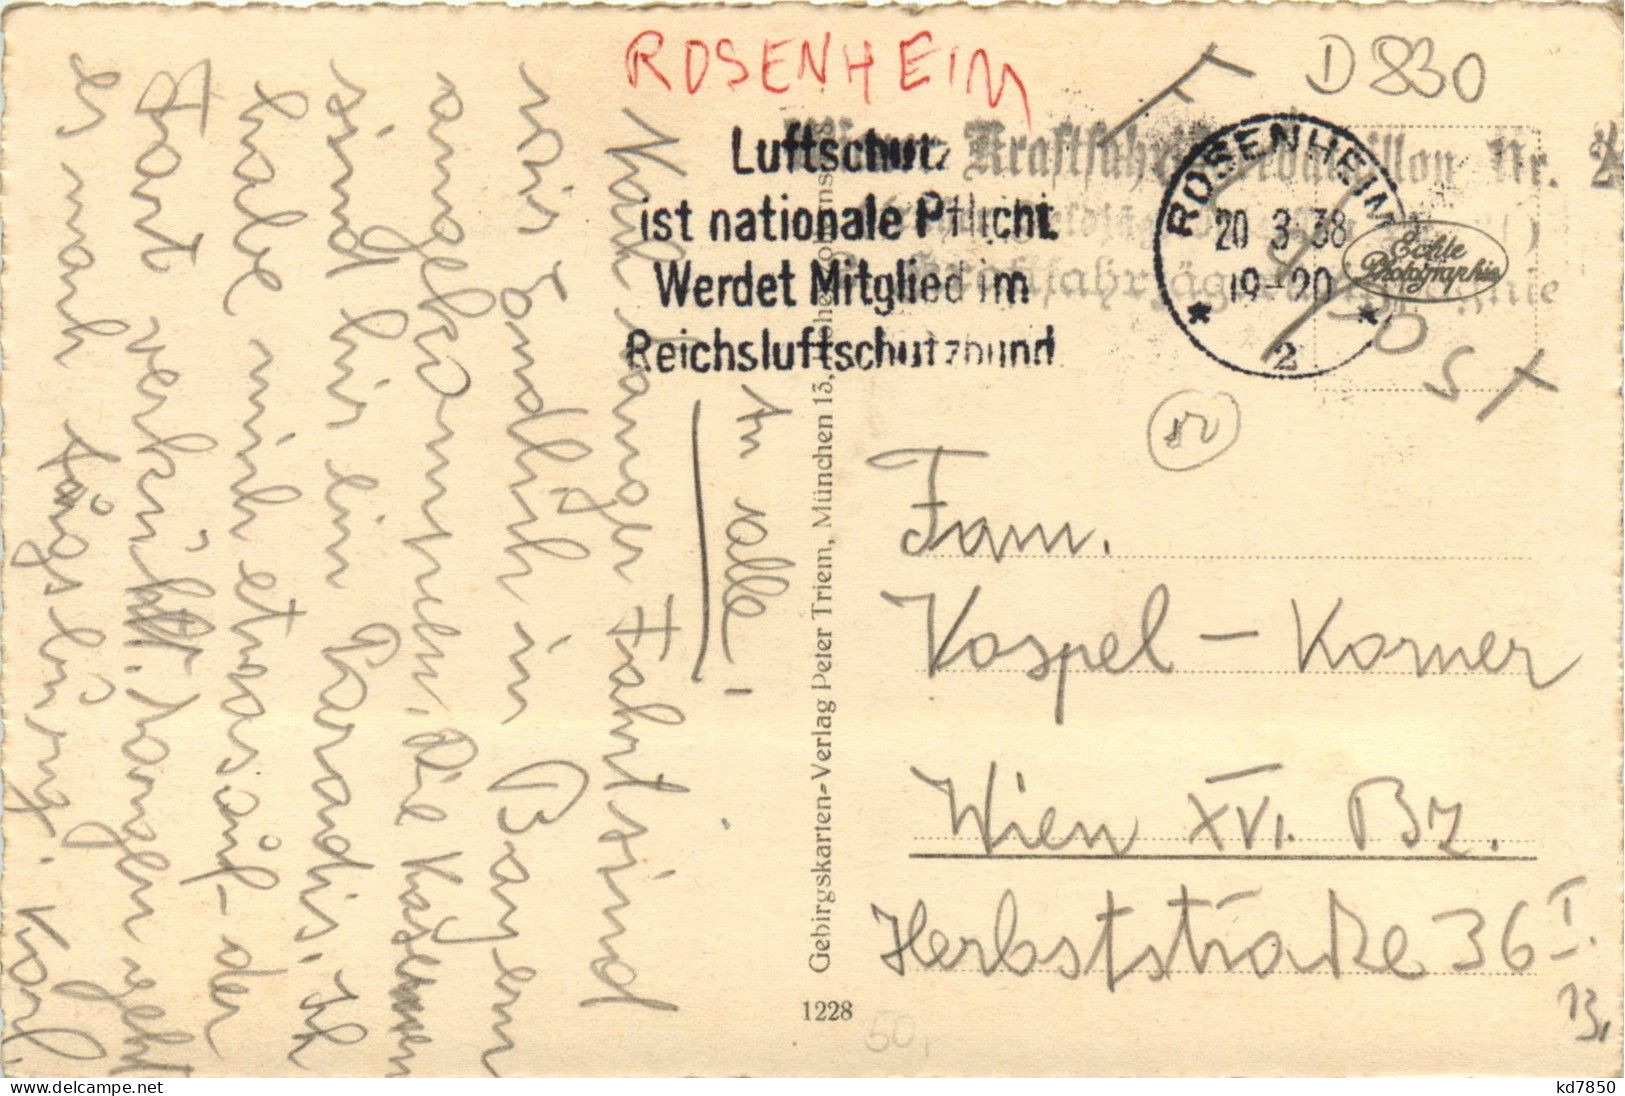 ROSENHEIM
D 830
Luftschutz
ist nationale Pflicht
Werdet Mitglied im
Reichsluftschutzbund
Kraftfahr Nr. 2
ROSENHEIM
20 3 38
19-20
* 2 *
Echte
Photographie
An alle!
Nach langer Fahrt sind
wir endlich in Bayern
angekommen. Die Kasernen
sind hir ein Paradis. Ich
habe mich etwas auf der
Fart verkühlt. Morgen geht
es nach
Karl.
Gebirgskarten-Verlag Peter Triem, München 13,
1228
50
Fam.
Kospel - Korner
Wien XVI. Bz.
Herbststraße 36 I.
13.
kd7850